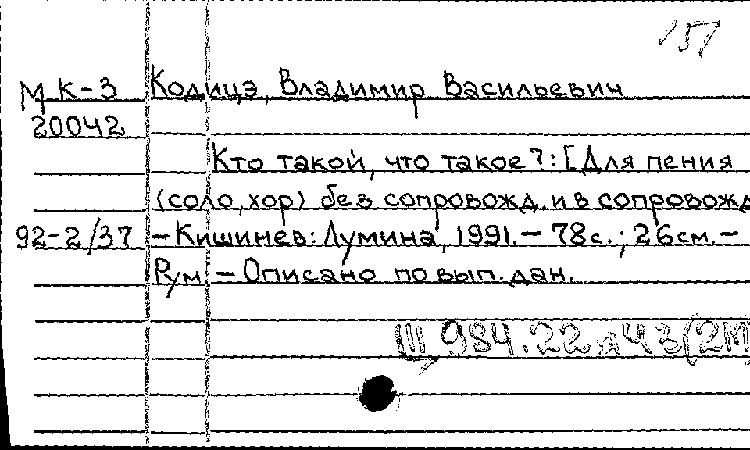 151
МК-3 Кодицэ, Владимир Васильевич
20042
Кто такой, что такое?: [Для пения
(соло, хор) без сопровожд. и в сопровожд
92-2/37 – Кишинев: Лумина, 1991. – 78с.; 26см. –
Рум. – Описано по вып. дан.
III 984.22я43(2М